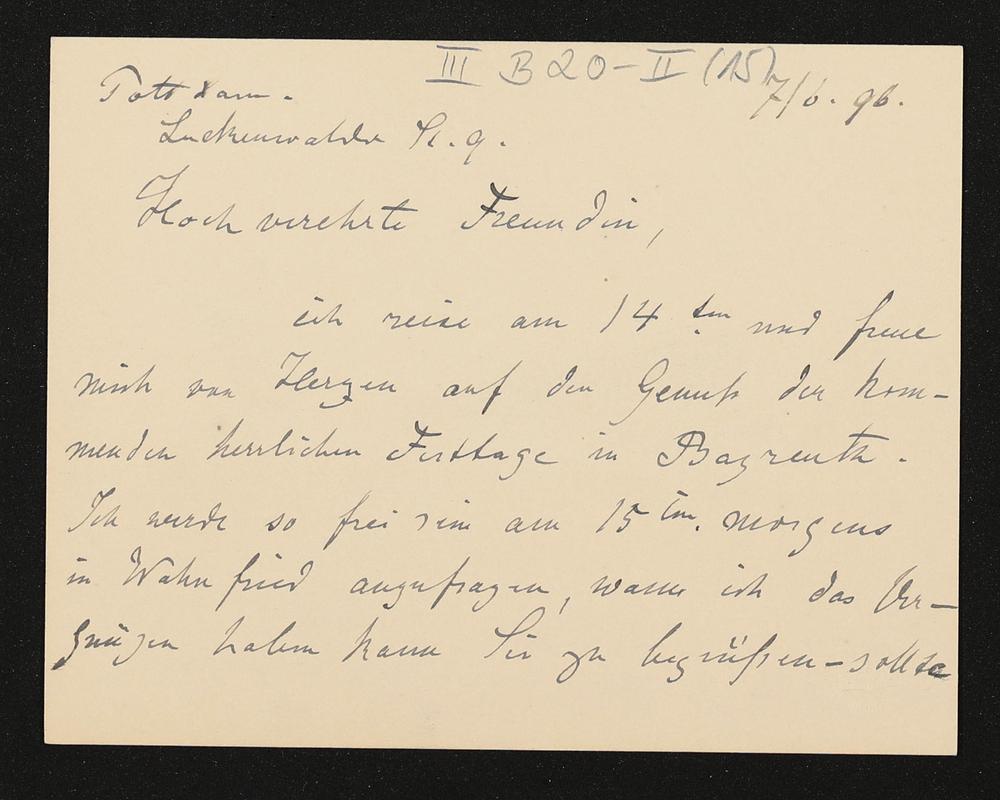 III B 20-II (15)
Pottsdam.
7/6. 96.
Luckenwalder St. 9.
Hochverehrte Freundin,
ich reise am 14ten und freue
mich von Herzen auf den Genuß der kom-
menden herrlichen Festtage in Bayreuth.
Ich werde so frei sein am 15ten. morgens
in Wahnfried anzufragen, wann ich das Ver-
gnügen haben kann Sie zu begrüßen - sollte